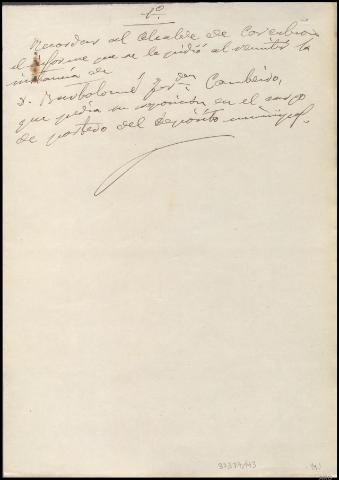 1º
Recordar al Alcalde de Corcubión
el informe que se le pidió al remitir la
instancia de
D. Bartolomé José Cambeiro,
que pedía su reposición en el cargo
de portero del depósito municipal.
37379/43